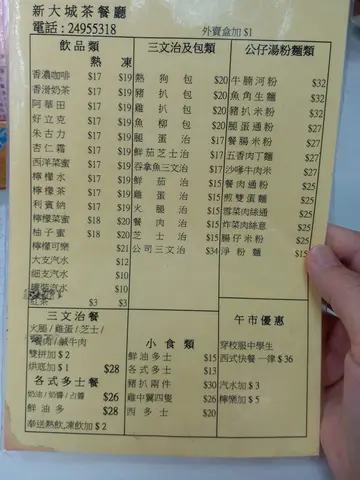 新大城茶餐廳
電話：24955318
外賣盒加 $1
飲品類
熱 凍
香濃咖啡 $17 $19
香滑奶茶 $17 $19
阿華田 $17 $19
好立克 $17 $19
朱古力 $17 $19
杏仁霜 $17 $19
西洋菜蜜 $17 $19
檸檬水 $17 $19
檸檬茶 $17 $19
利賓納 $17 $19
檸檬菜蜜 $18 $20
柚子蜜 $18 $20
檸檬可樂 $21
大支汽水 $12
細支汽水 $10
罐裝汽水 $12
紅茶 $3 $3
三文治及包類
熱狗包 $20
豬扒包 $20
雞扒包 $20
魚柳包 $20
腿蛋治 $17
鮮茄芝士治 $17
吞拿魚三文治 $17
鮮茄治 $15
雞蛋治 $15
火腿治 $15
餐肉治 $15
芝士治 $15
公司三文治 $34
公仔湯粉麵類
牛腩河粉 $32
魚角生麵 $32
豬扒米粉 $32
腿蛋通粉 $27
餐腸米粉 $27
五香肉丁麵 $27
沙嗲牛肉米 $27
餐肉通粉 $25
煎雙蛋麵 $25
雪菜肉絲通 $25
炸菜肉絲意 $25
腸仔米粉 $25
淨粉麵 $15
三文治餐
火腿/雞蛋/芝士/
餐肉/鹹牛肉
雙拼加 $2
烘底加 $1 $28
各式多士餐
奶油/奶醬/占醬 $26
鮮油多 $28
奉送熱飲,凍飲加 $2
小食類
鮮油多士 $15
各式多士 $13
豬扒兩件 $30
雞中翼四隻 $26
西多士 $20
午市優惠
穿校服中學生
西式快餐一律 $36
汽水加 $3
檸樂加 $5